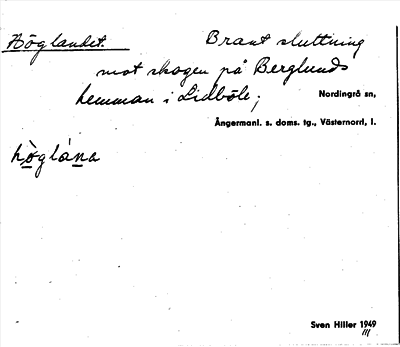 Höglandet. Brant sluttning
mot skogen på Berglunds
hemman i Lidböle; Nordingrå sn,
Ångermanl. s. doms. tg., Västernorrl, l.
hòglána
Sven Hiller 1949
III